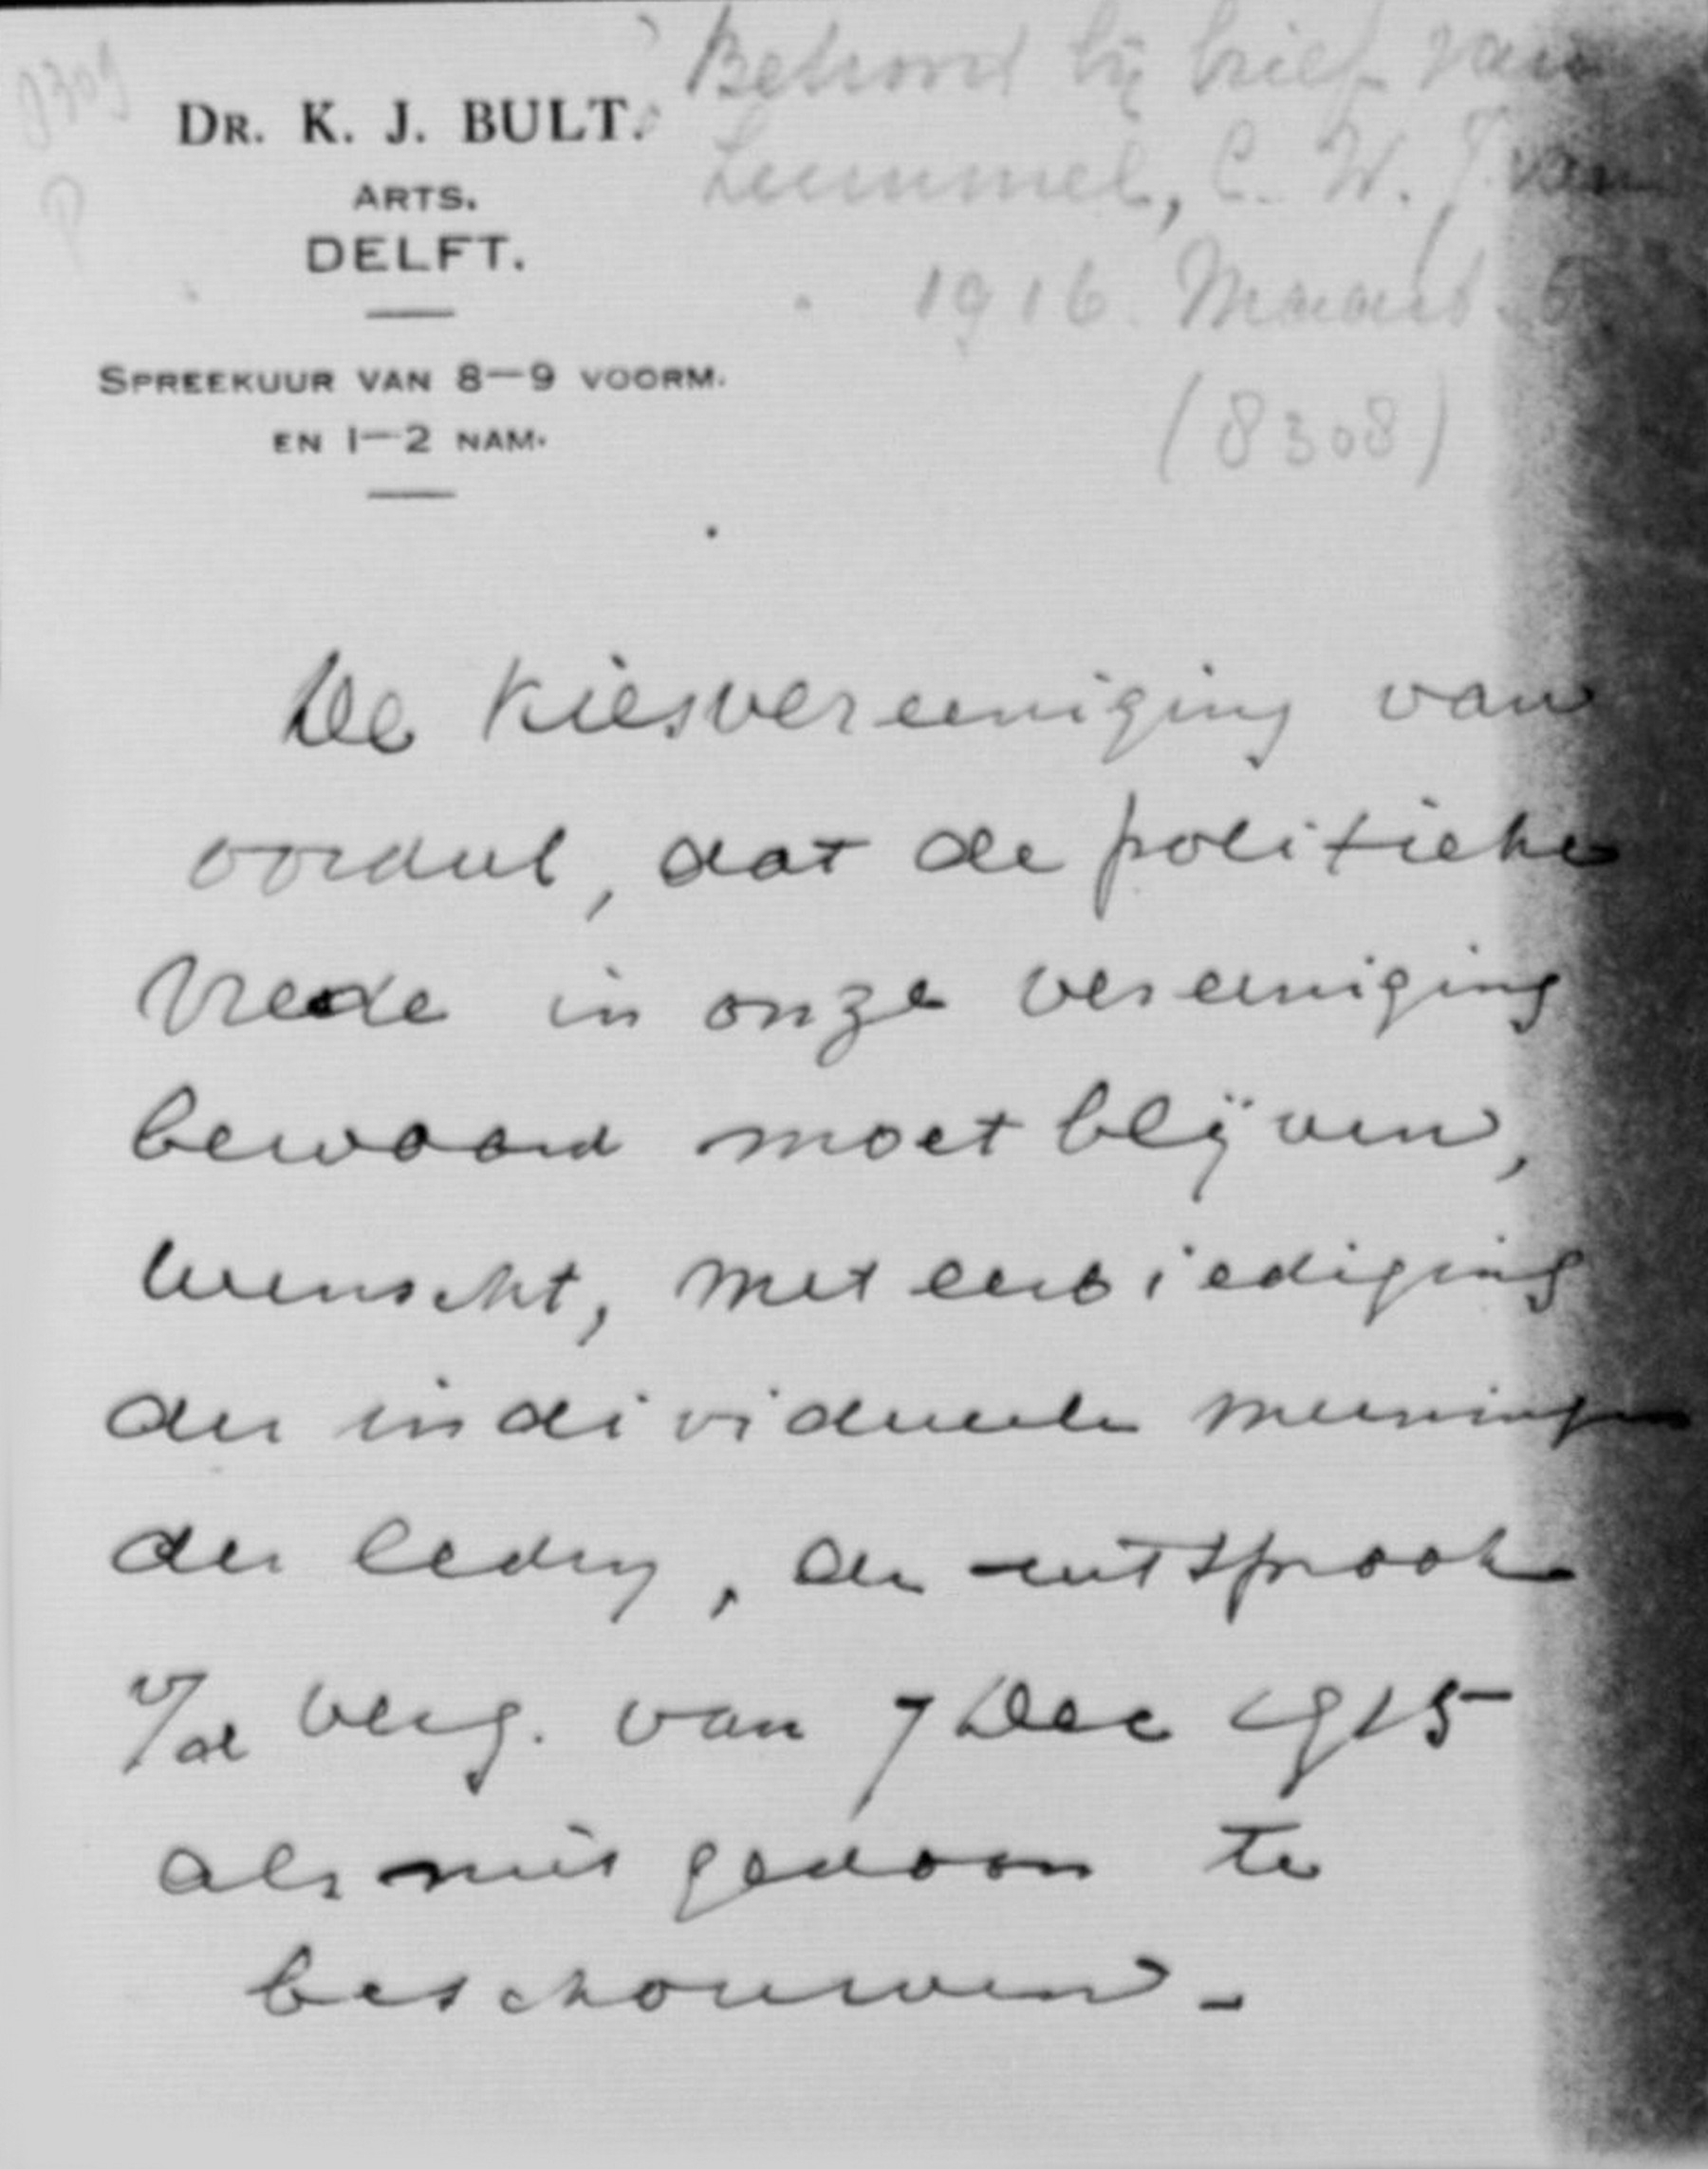 8309
P
Behoort bij brief van
Lummel, C. W. J. van
1916. Maart 5
(8308)
DR. K. J. BULT.
ARTS.
DELFT.
SPREEKUUR VAN 8—9 VOORM.
EN 1—2 NAM.
De Kiesvereeniging van
oordeel, dat de politieke
Vrede in onze vereeniging
bewaard moet blijven,
wenscht, met eerbiediging
der individueele meeningen
der leden, de uitspraak
v/d verg. van 7 Dec 1915
als niet gedaan te
beschouwen -